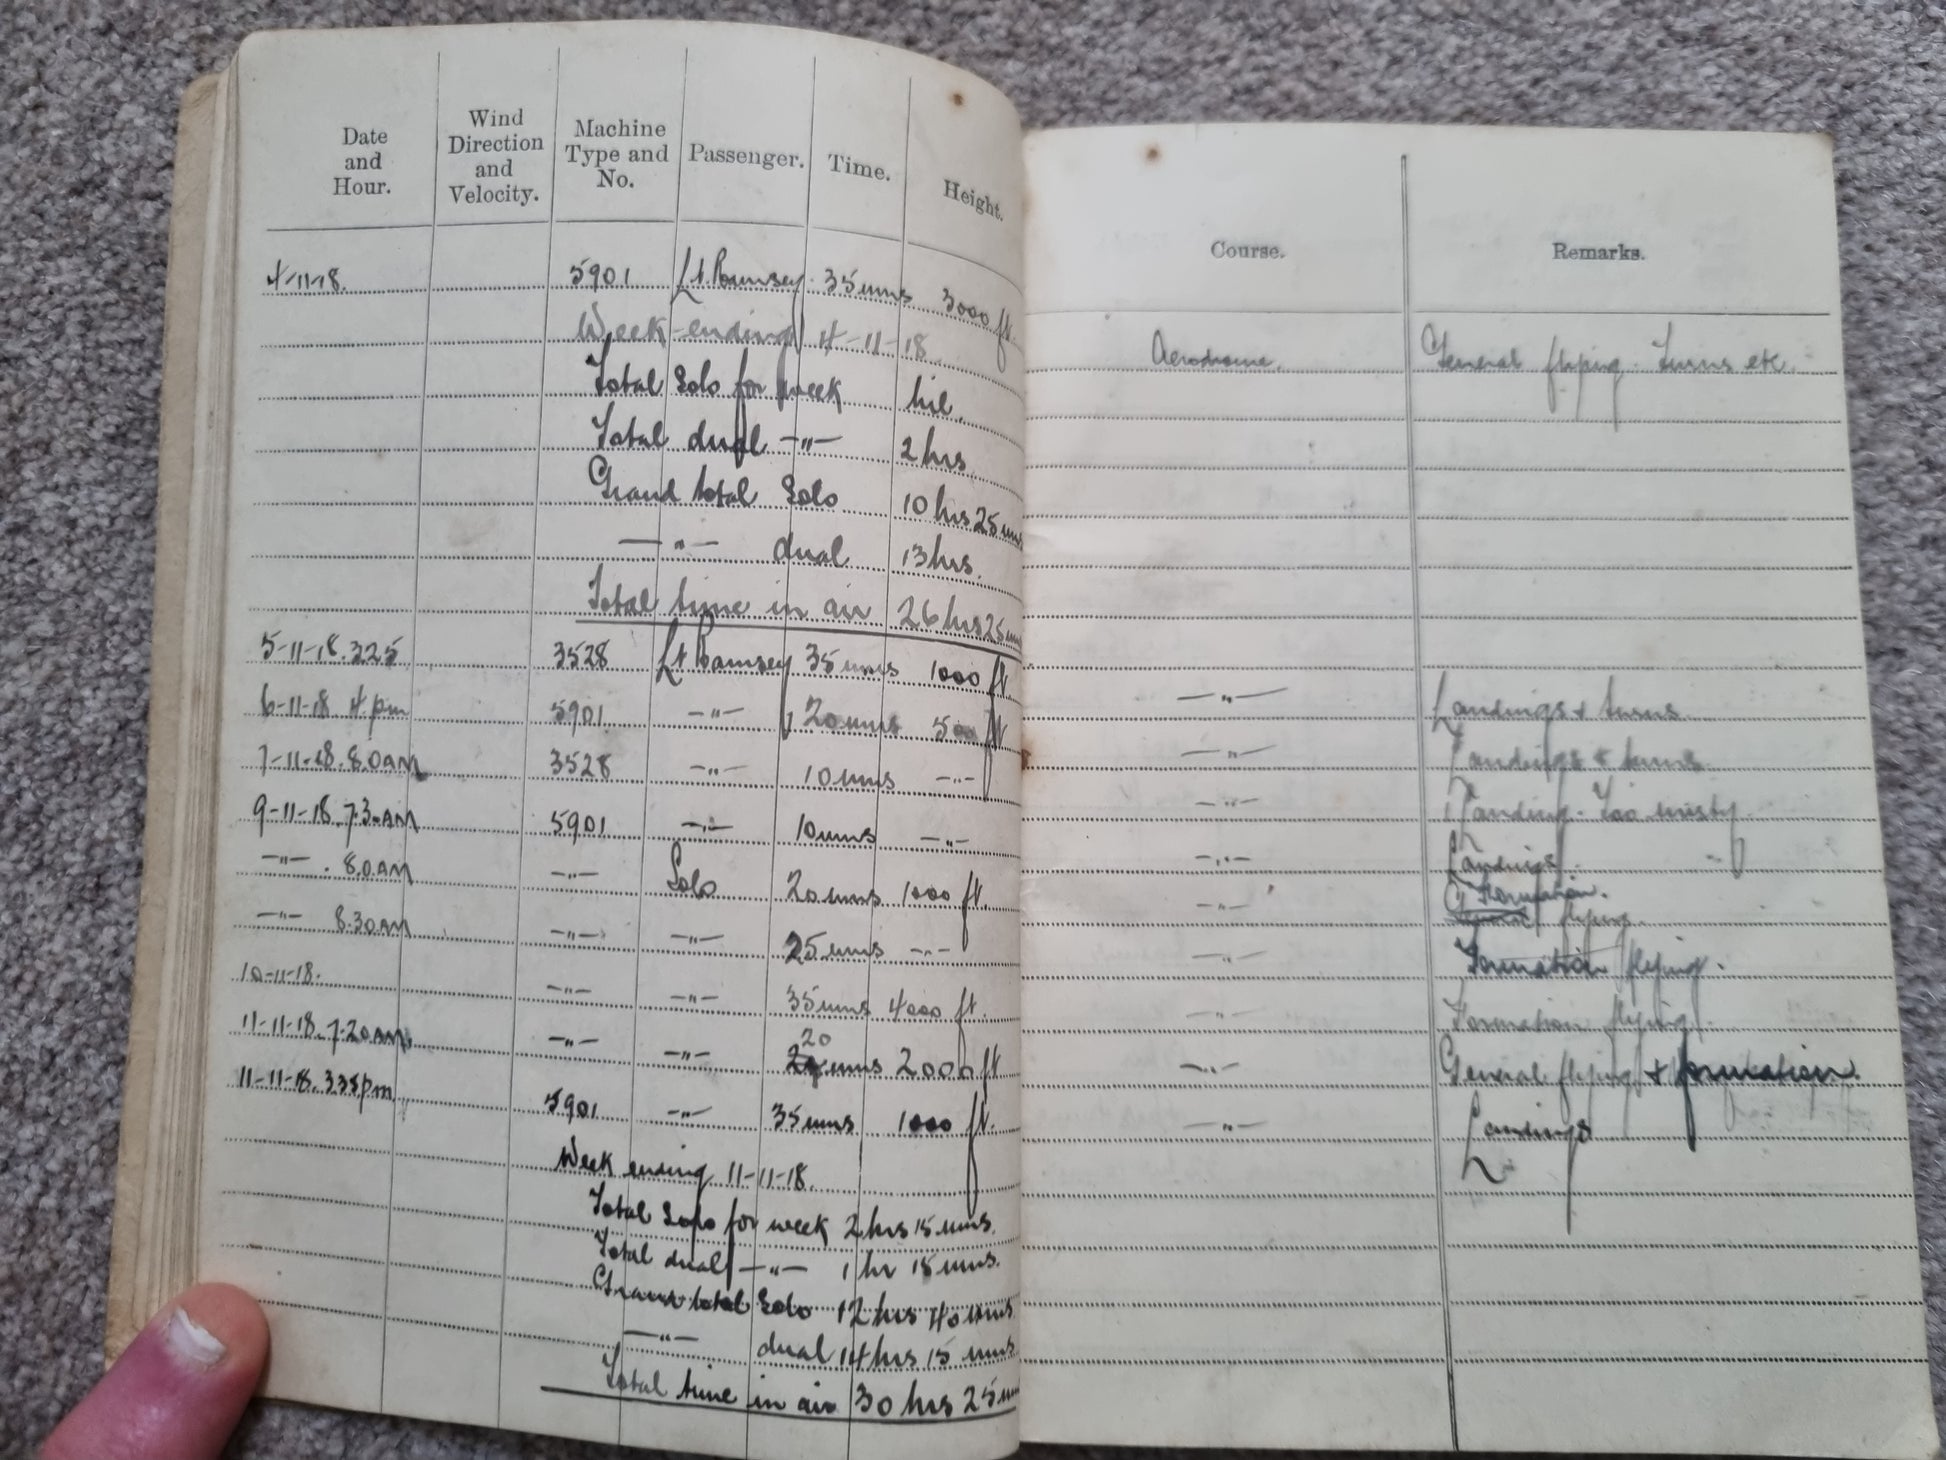 Date and Hour. Wind Direction and Velocity. Machine Type and No. Passenger. Time. Height. Course. Remarks.
4-11-18. 5901 Lt Ramsey. 35 mns 3000 ft. Aerodrome. General flying. Turns etc.
Week-ending 4-11-18.
Total Solo for week nil.
Total dual -"- 2 hrs
Grand total Solo 10 hrs 25 mns
-"- dual 13 hrs.
Total time in air 26 hrs 25 mns
5-11-18. 3.25 3528 Lt Ramsey 35 mns 1000 ft. -"- Landings & turns
6-11-18 4 pm 5901 -"- 20 mns 500 ft -"- Landings & turns
7-11-18. 8.0 AM 3528 -"- 10 mns -"- -"- Landing. Too misty.
9-11-18. 7.30 AM 5901 -"- 10 mns -"- -"- Landings. -"-
-"- . 8.0 AM -"- Solo 20 mns 1000 ft. -"- Formation. flying.
-"- 8.30 AM -"- -"- 25 mns -"- -"- Formation flying.
10-11-18. -"- -"- 35 mns 4000 ft. -"- Formation flying.
11-11-18. 7.20 AM. -"- -"- 20 mns 2000 ft -"- General flying & formation.
11-11-18. 3.35 pm. 5901 -"- 35 mns 1000 ft. -"- Landings
Week ending 11-11-18.
Total Solo for week 2 hrs 15 mns.
Total dual -"- 1 hr 15 mns.
Grand total Solo 12 hrs 40 mns.
-"- dual 14 hrs 15 mns.
Total time in air 30 hrs 25 mns